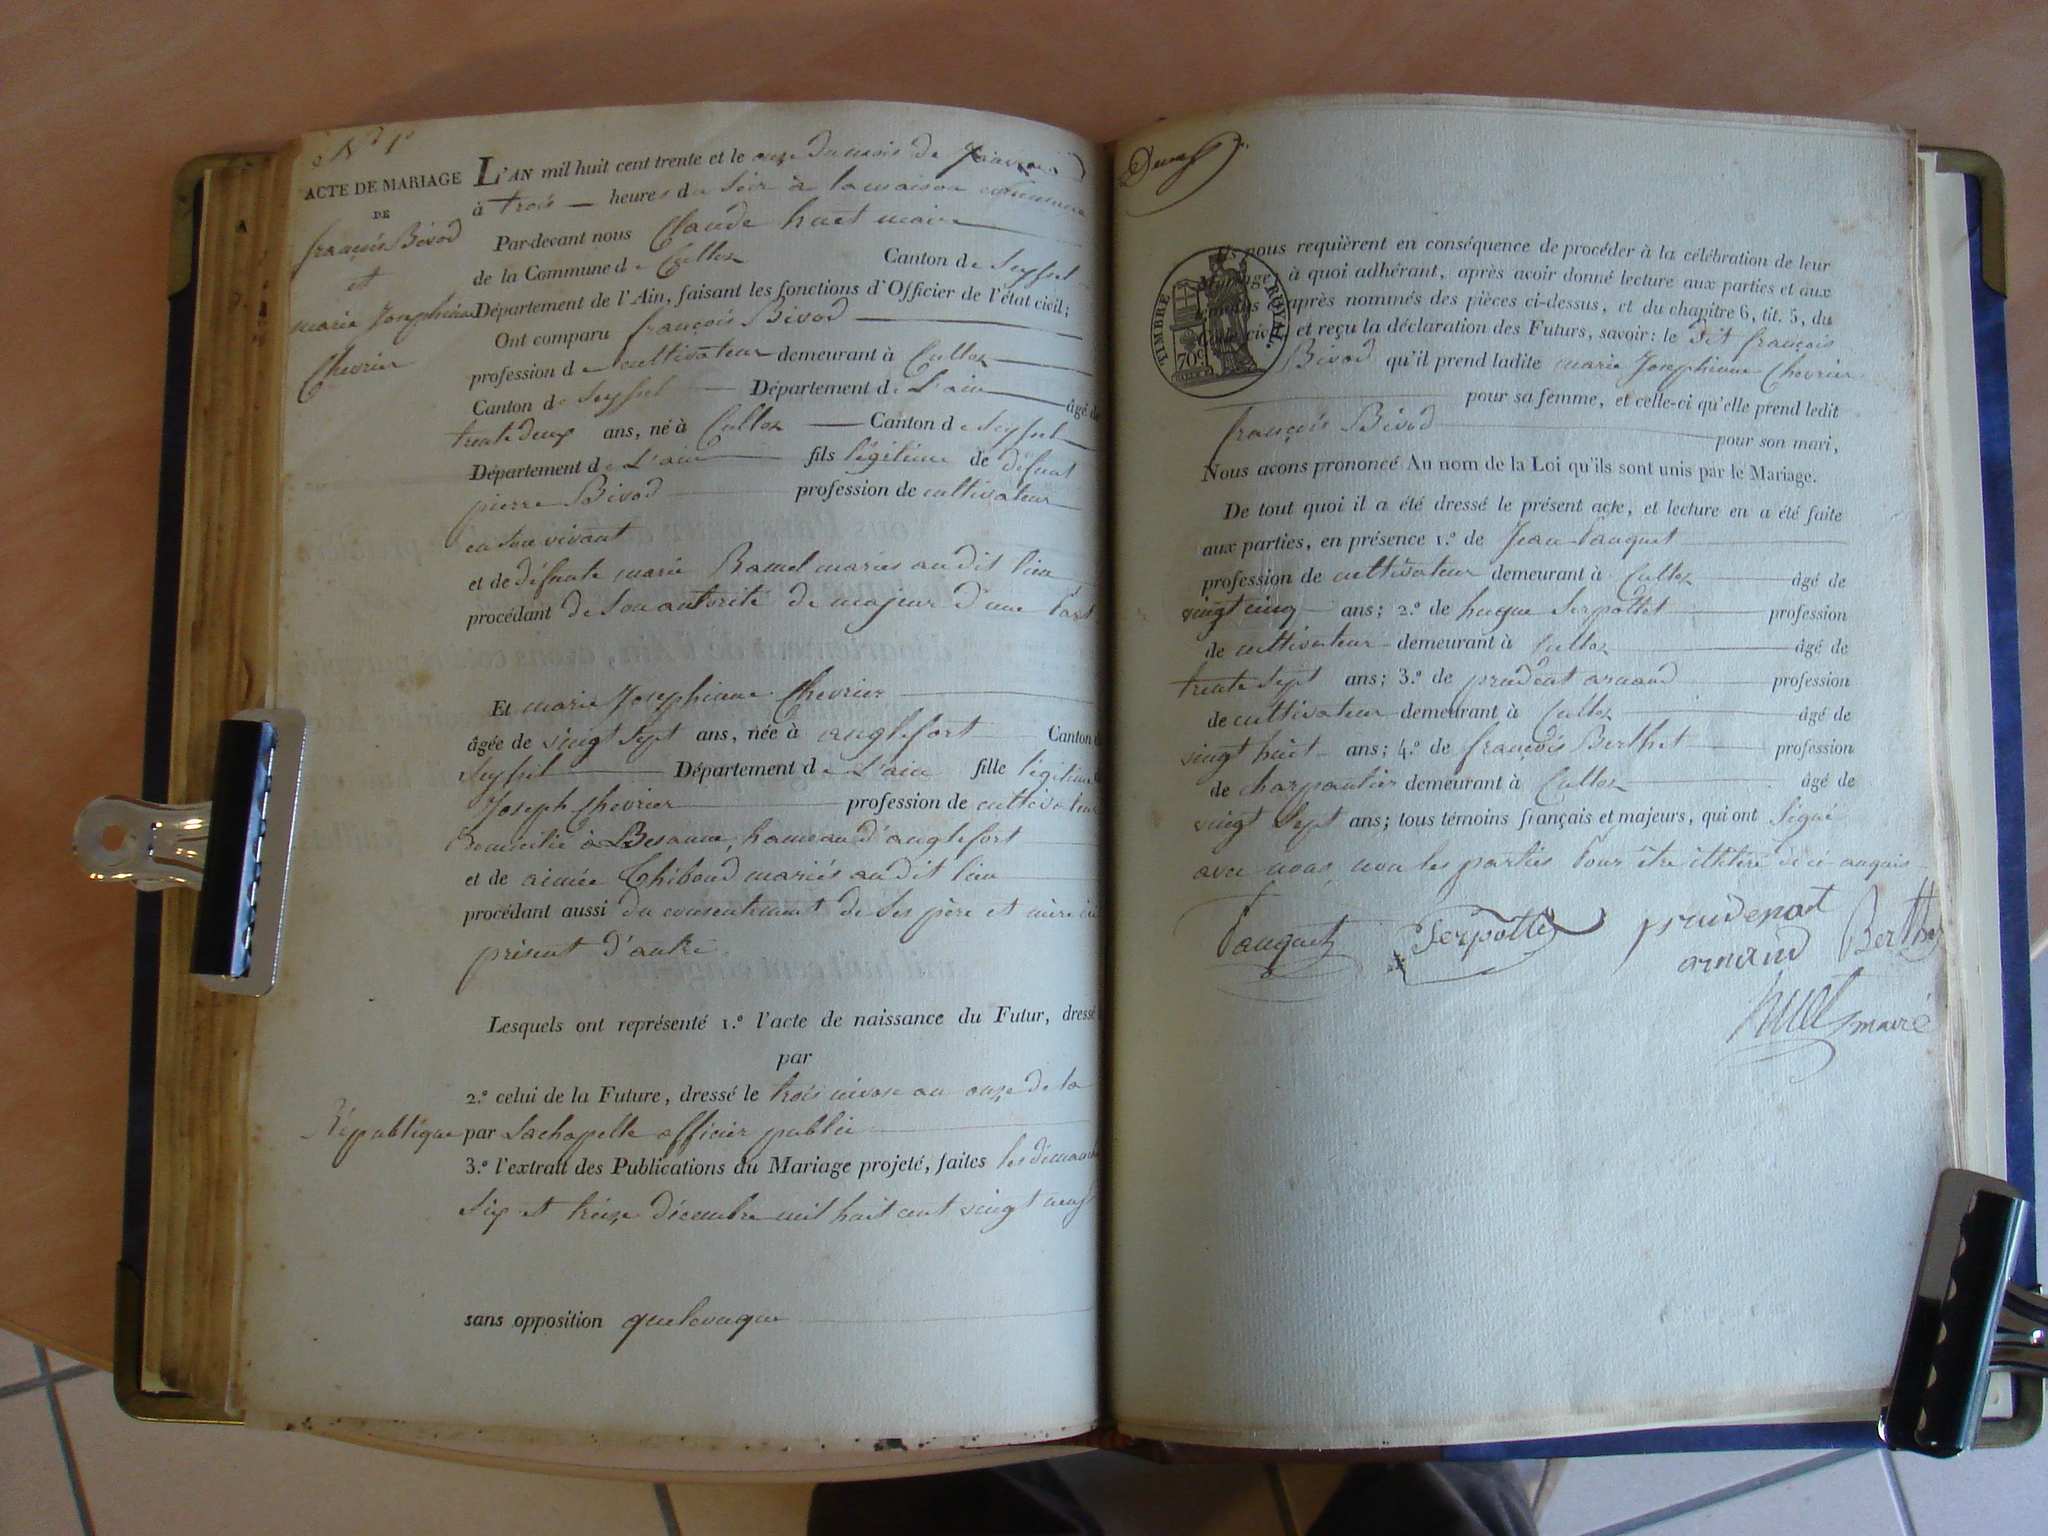 N.º 1er
ACTE DE MARIAGE
DE
françois Bivod
et
marie Josephinne
Chevrier
L'AN mil huit cent trente et le onze du mois de Janvier
à trois heures du soir à la maison commune
Par-devant nous Claude huet maire
de la Commune de Culloz Canton de Seyssel
Département de l'Ain, faisant les fonctions d'Officier de l'état civil;
Ont comparu françois Bivod
profession de cultivateur demeurant à Culloz
Canton de Seyssel Département de L'ain âgé de
trente deux ans, né à Culloz Canton de Seyssel
Département de L'ain fils légitime de défunt
pierre Bivod profession de cultivateur
en son vivant
et de défunte marie Ramel mariés au dit lieu
procédant de son autorité de majeur d'une part
Et marie Josephinne Chevrier
âgée de vingt sept ans, née à anglefort Canton de
Seyssel Département de L'ain fille légitime
Joseph Chevrier profession de cultivateur
Domicilié à Besanne, hameau d'anglefort
et de aimée Thiboud mariés au dit lieu
procédant aussi du consentement de ses père et mère ici
présent d'autre
Lesquels ont représenté 1.º l'acte de naissance du Futur, dressé
par
2.º celui de la Future, dressé le trois nivose an onze de la
République par Lachapelle officier public
3.º l'extrait des Publications du Mariage projeté, faites les dimanche
six et treize décembre mil huit cent vingt neuf
sans opposition quelconque
TIMBRE ROYAL.
70c
Ils nous requièrent en conséquence de procéder à la célébration de leur
mariage, à quoi adhérant, après avoir donné lecture aux parties et aux
témoins après nommés des pièces ci-dessus, et du chapitre 6, tit. 5, du
Code civil, et reçu la déclaration des Futurs, savoir: le dit françois
Bivod qu'il prend ladite marie Josephinne Chevrier
pour sa femme, et celle-ci qu'elle prend ledit
françois Bivod pour son mari,
Nous avons prononcé Au nom de la Loi qu'ils sont unis par le Mariage.
De tout quoi il a été dressé le présent acte, et lecture en a été faite
aux parties, en présence 1.º de Jean fauquet
profession de cultivateur demeurant à Culloz âgé de
vingt cinq ans; 2.º de hugue Serpollet profession
de cultivateur demeurant à Culloz âgé de
trente sept ans; 3.º de prudent arnaud profession
de cultivateur demeurant à Culloz âgé de
vingt huit ans; 4.º de françois Berthet profession
de charpentier demeurant à Culloz âgé de
vingt sept ans; tous témoins français et majeurs, qui ont signé
avec nous non les parties pour être illitéré de ce enquis
fauquet Serpollet prudent arnaud Berthet
huet maire